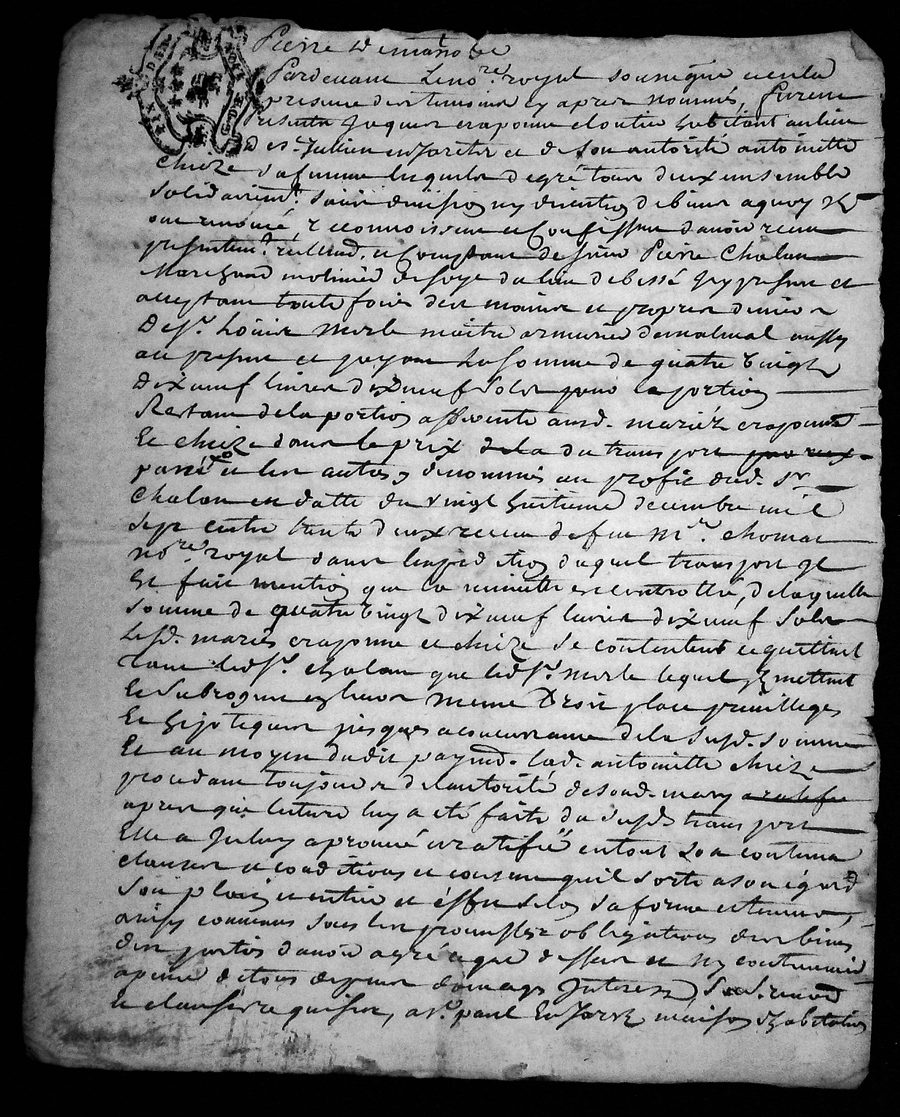 Pierre
Pardevant Le no.re royal soussigne et en la
presence des temoins cy apres nommés, furent
presents Jaques craponne cloutier habitant au lieu
de S.t Jullien en Jaretz et de son autorité antoinette
Chieze sa femme lesquels de gré tous deux ensemble
solidairem.t sans division ny discution de biens a quoy ils
ont renoncé, reconnoissent et Confessent d'avoir receu
presentem.t reellem.t et Comptant de sieur Pierre Chalan
Marchand molinier de soye du lieu de icy present et
acceptant toute fois des mains et propres deniers
De s.r Loüis merle maitre armurier aussy
au present et payant La somme de quatre vingt
dix neuf livres dix neuf sols pour la portion
Restant de la portion afferente ausd. mariéz craponne
Et chieze dans le prix de la du transport
passé et les autres y dénommés au profit dud. s.r
Chalan en datte du vingt huitieme décembre mil
sept cents trente deux receu de feu M.re chomat
no.re royal dans l'expedition duquel transport il
Est fait mention que la minutte est controllée, de laquelle
somme de quatre vingt dix neuf livres dix neuf sols
Lesd. mariés craponne et chieze se contentent et quittent
tant led. s.r chalan que led. s.r merle lequel ils mettent
Et subrogent en leur meme Droit place privilleges
Et hipoteques jusques a concurrance de la susd. somme
Et au moyen dudit payem.t lad. antoinette chieze
procedant toujours de l'autorité de sond. mary
apres que lecture luy a été faite du susd. transport
Elle a Juluy aprouvé et ratifié en tout son contenu
clauses et conditions et consent qu'il sorte a son égard
son plein et entier et effet selon sa forme et teneur,
ainsy convenus sous les promesses obligations des biens
des parties d'avoir agré ce que dessus et n'y contrevenir
a peine de tous depens domages Interests, Sous.
et clauses requises, a S.t paul En Jarez maison d'habitation